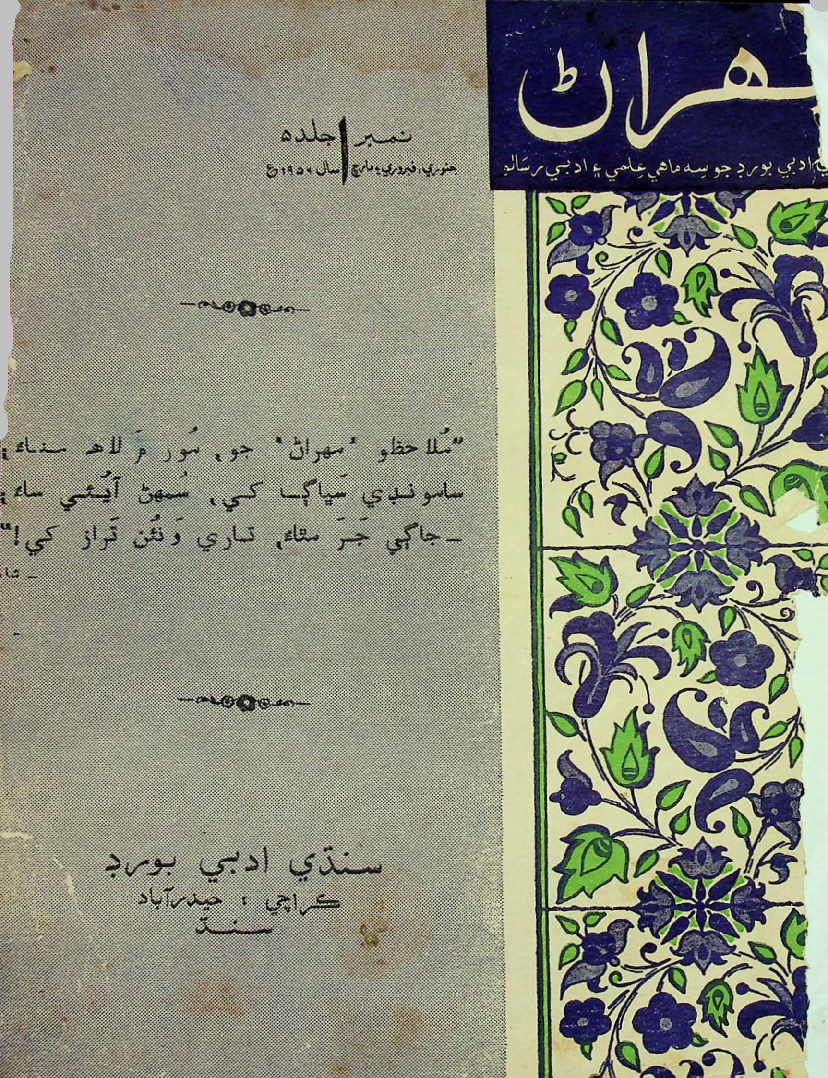 مهراڻ
ادبي بورڊ جو سِه ماهي عِلمي ۽ ادبي رسالو
نمبر 1 جلد ۵
جنوري، فبروري، مارچ سال ۱۹۵۶ع
”مُلاحظو ’مهراڻ‘ جو، سُور مَ لاهہ سناء؛
سامونڊي سَياڳا کي، سُمهڻ آيُئي ساء؛
ــ جاڳي جَرَ مٿاء، تاري وَنئُن تَراز کي!“
سنڌي ادبي بورڊ
ڪراچي ؛ حيدرآباد
سنڌ